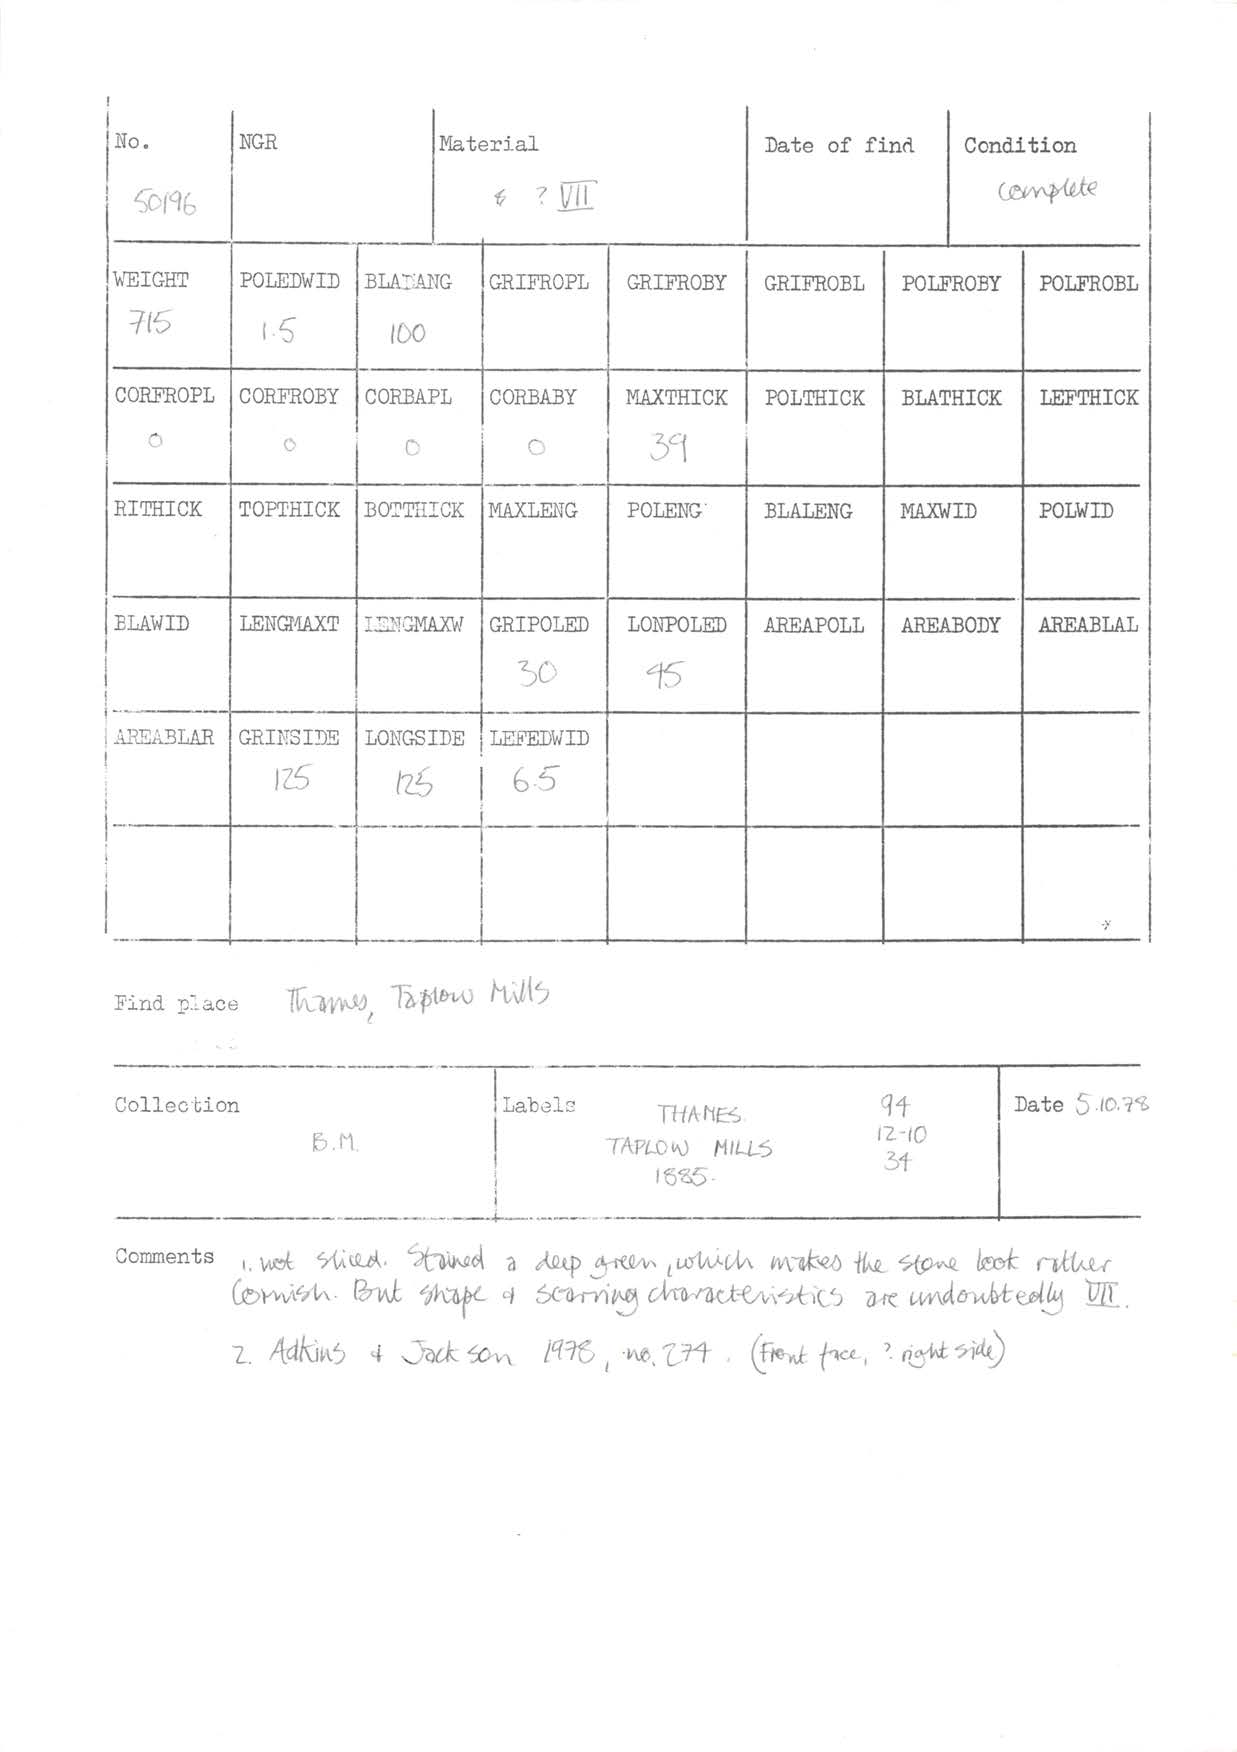 No. NGR Material Date of find Condition
50196 ? VII complete
WEIGHT POLEDWID BLADANG GRIFROPL GRIFROBY GRIFROBL POLFROBY POLFROBL
715 1.5 100
CORFROPL CORFROBY CORBAPL CORBABY MAXTHICK POLTHICK BLATHICK LEFTHICK
0 0 0 0 39
RITHICK TOPTHICK BOTTHICK MAXLENG POLENG BLALENG MAXWID POLWID
BLAWID LENGMAXT LENGMAXW GRIPOLED LONPOLED AREAPOLL AREABODY AREABLAL
30 45
AREABLAR GRINSIDE LONGSIDE LEFEDWID
125 125 6.5
Find place Thames, Taplow Mills
Collection Labels THAMES. 94 Date 5.10.78
B.M. TAPLOW MILLS 12-10
1885. 34
Comments 1. not sliced. Stained a deep green, which makes the stone look rather
Cornish. But shape & scarring characteristics are undoubtedly VII.
2. Adkins & Jackson 1978, no. 274. (Front face, ? right side)